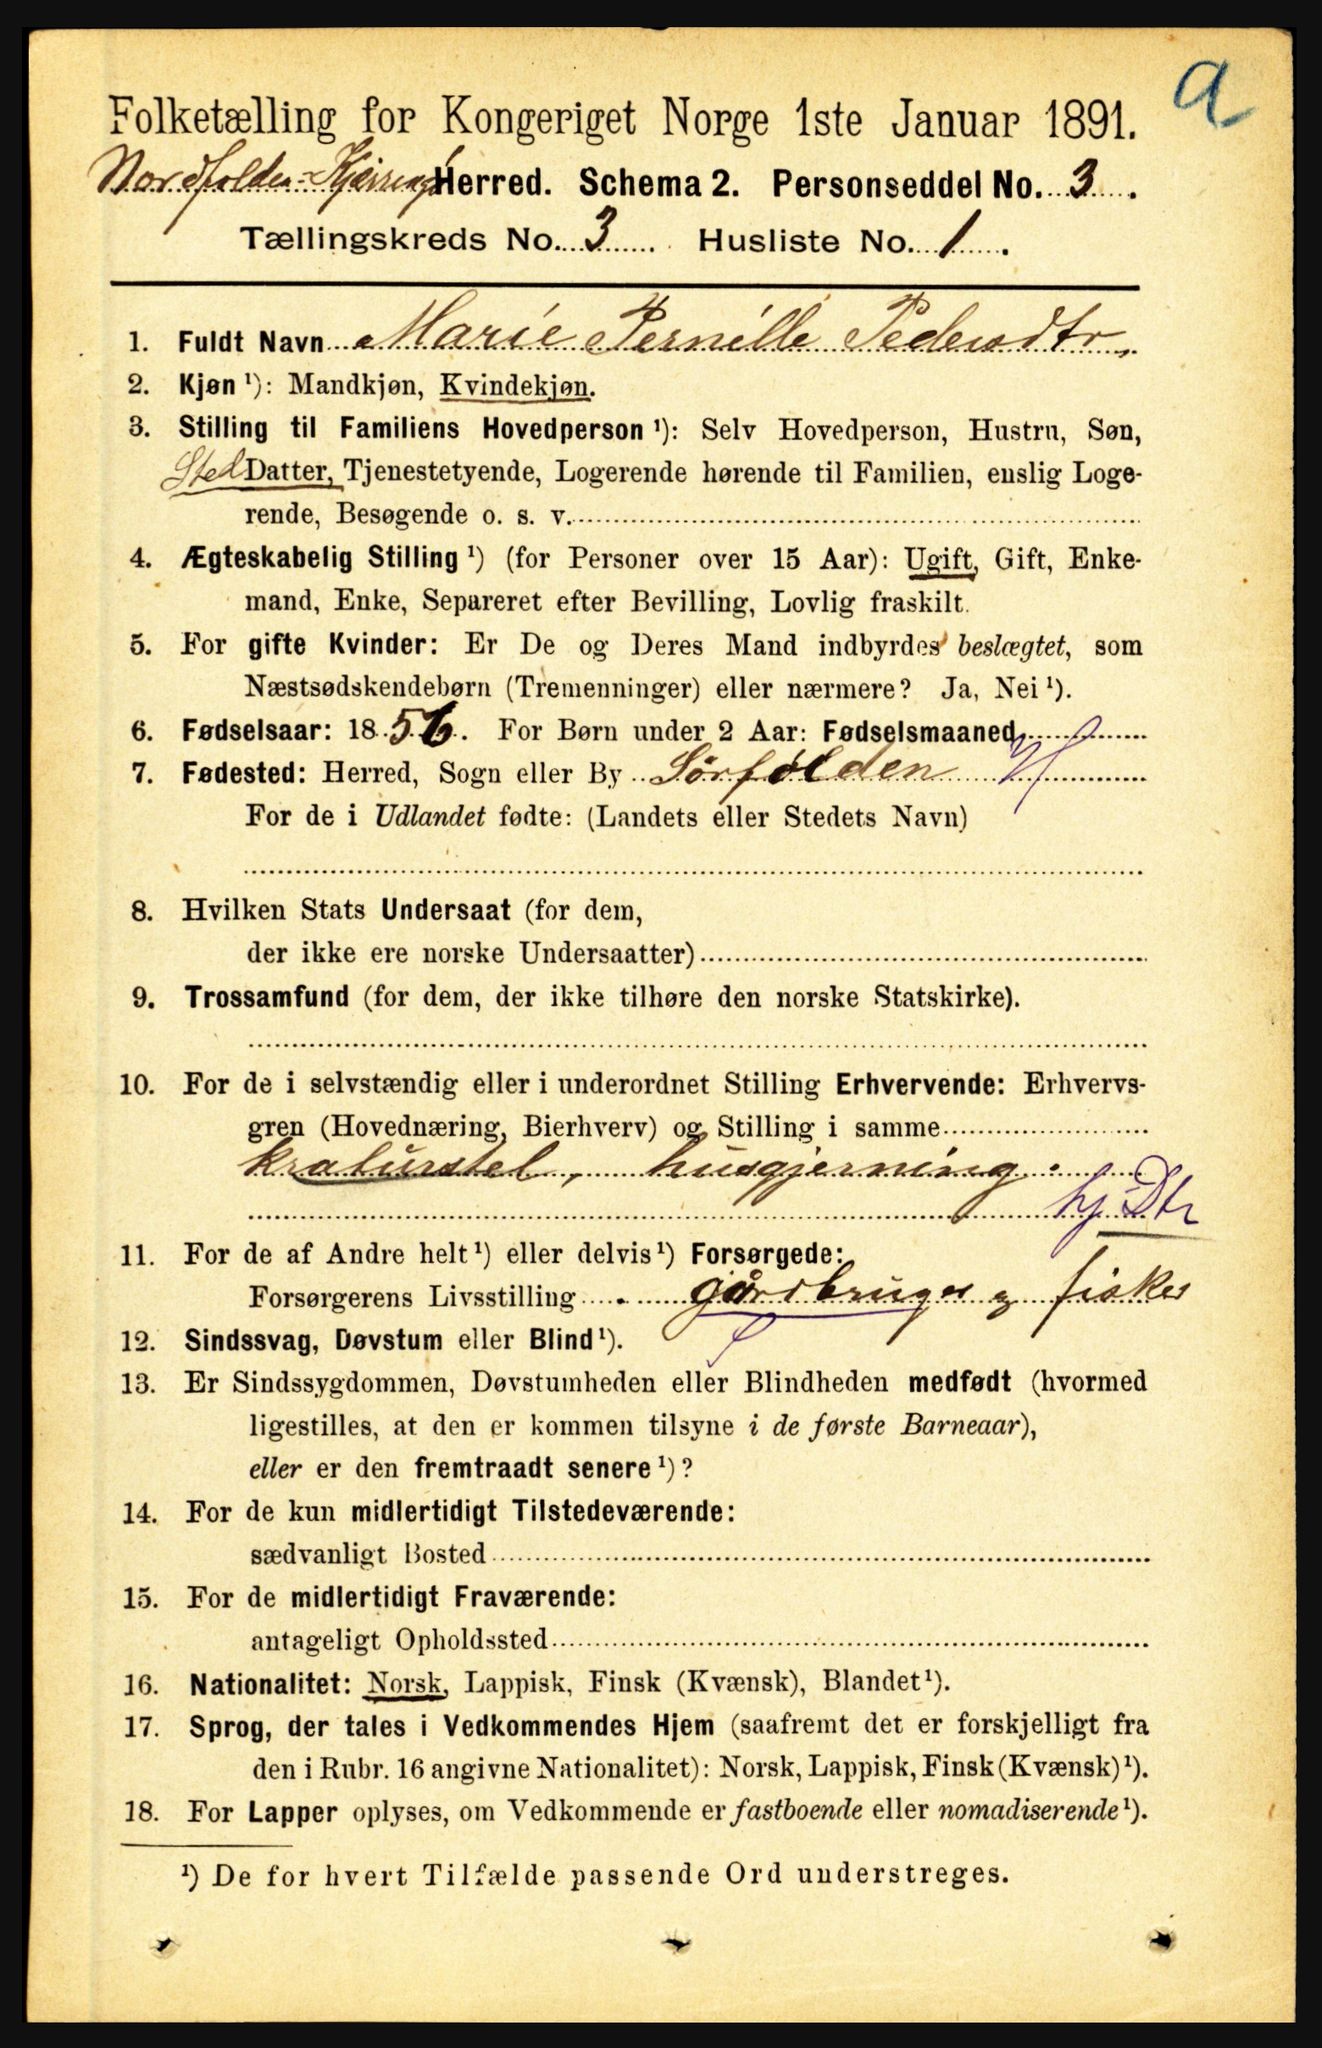 a
Folketælling for Kongeriget Norge 1ste Januar 1891.
Nordfolden-Kjerringø Herred. Schema 2. Personseddel No. 3.
Tællingskreds No. 3. Husliste No. 1.
1. Fuldt Navn Marie Pernille Pedersdtr.
2. Kjøn ¹): Mandkjøn, Kvindekjøn.
3. Stilling til Familiens Hovedperson ¹): Selv Hovedperson, Hustru, Søn,
Sted Datter, Tjenestetyende, Logerende hørende til Familien, enslig Loge-
rende, Besøgende o. s. v.
4. Ægteskabelig Stilling ¹) (for Personer over 15 Aar): Ugift, Gift, Enke-
mand, Enke, Separeret efter Bevilling, Lovlig fraskilt.
5. For gifte Kvinder: Er De og Deres Mand indbyrdes beslægtet, som
Næstsødskendebørn (Tremenninger) eller nærmere? Ja, Nei ¹).
6. Fødselsaar: 1856. For Børn under 2 Aar: Fødselsmaaned
7. Fødested: Herred, Sogn eller By Sörfolden
For de i Udlandet fødte: (Landets eller Stedets Navn)
8. Hvilken Stats Undersaat (for dem,
der ikke ere norske Undersaatter)
9. Trossamfund (for dem, der ikke tilhøre den norske Statskirke).
10. For de i selvstændig eller i underordnet Stilling Erhvervende: Erhvervs-
gren (Hovednæring, Bierhverv) og Stilling i samme
kraturstel, husgjerning.
hj Dtr
11. For de af Andre helt ¹) eller delvis ¹) Forsørgede:
Forsørgerens Livsstilling gårdbruger og fisker
12. Sindssvag, Døvstum eller Blind ¹).
13. Er Sindssygdommen, Døvstumheden eller Blindheden medfødt (hvormed
ligestilles, at den er kommen tilsyne i de første Barneaar),
eller er den fremtraadt senere ¹)?
14. For de kun midlertidigt Tilstedeværende:
sædvanligt Bosted
15. For de midlertidigt Fraværende:
antageligt Opholdssted
16. Nationalitet: Norsk, Lappisk, Finsk (Kvænsk), Blandet ¹).
17. Sprog, der tales i Vedkommendes Hjem (saafremt det er forskjelligt fra
den i Rubr. 16 angivne Nationalitet): Norsk, Lappisk, Finsk (Kvænsk) ¹).
18. For Lapper oplyses, om Vedkommende er fastboende eller nomadiserende ¹).
¹) De for hvert Tilfælde passende Ord understreges.